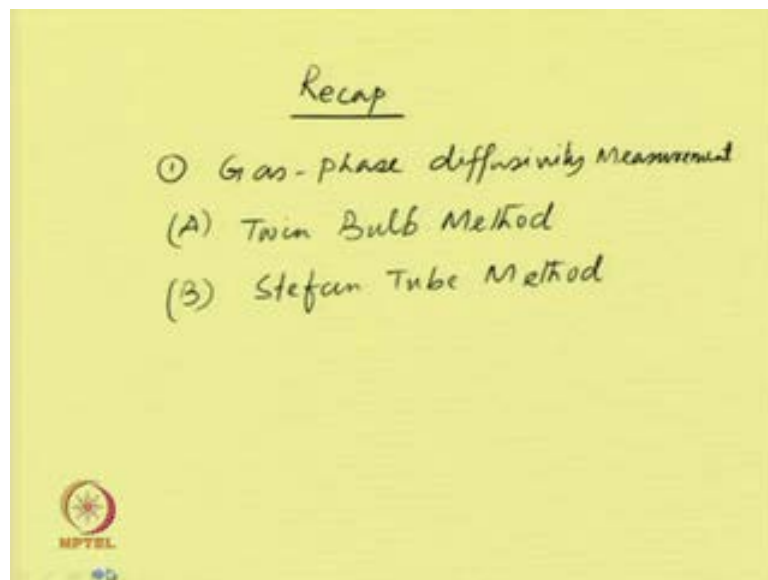 Recap
① Gas-phase diffusivity Measurement
(A) Twin Bulb Method
(B) Stefan Tube Method
NPTEL